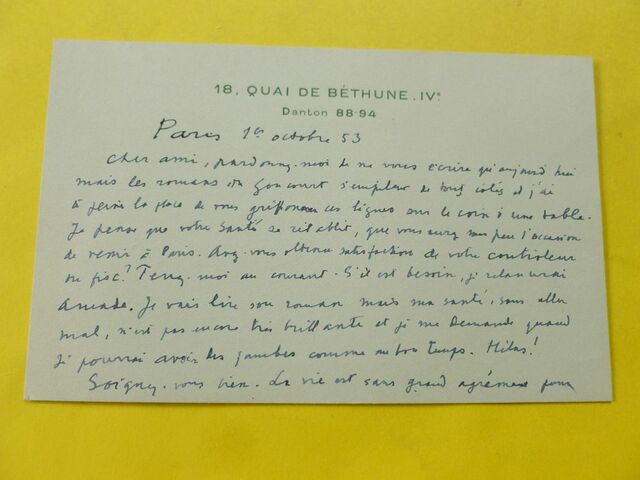 18, QUAI DE BÉTHUNE. IVe
Danton 88-94
Paris 1er octobre 53
Cher ami, pardonnez-moi de ne vous écrire qu'aujourd'hui
mais les romans du Goncourt s'empilent de tous côtés et j'ai
à peine la place de vous griffonner ces lignes sur le coin d'une table.
Je pense que votre santé se rétablit, que vous aurez sous peu l'occasion
de venir à Paris. Avez-vous obtenu satisfaction de votre contrôleur
du fisc? Tenez-moi au courant. S'il est besoin, je relancerai
Je vais lire son roman mais ma santé, sans aller
mal, n'est pas encore très brillante et je me demande quand
je pourrai avoir les jambes comme au bon temps. Hélas!
Soignez-vous bien. La vie est sans grand agrément pour